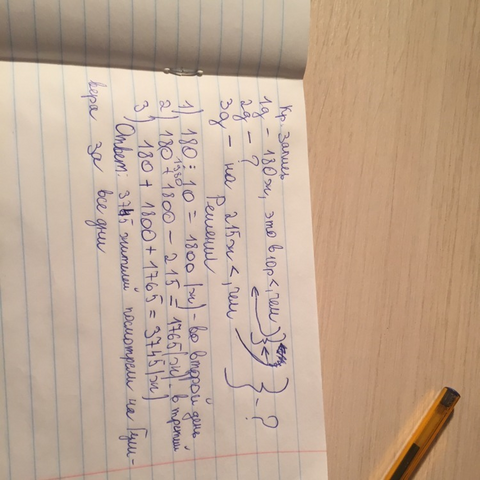 Кр. запись
1д – 180ж, это в 10р <, чем
2д – ?
3д – на 215ж <, чем } – ?
Решение
1) 180 : 10 = 1800 (ж) – во второй день
1980
2) 180 + 1800 – 215 = 1765 (ж) – в третий
3) 180 + 1800 + 1765 = 3745 (ж)
Ответ: 3745 жителей посмотрели на Гулли-
вера за все дни